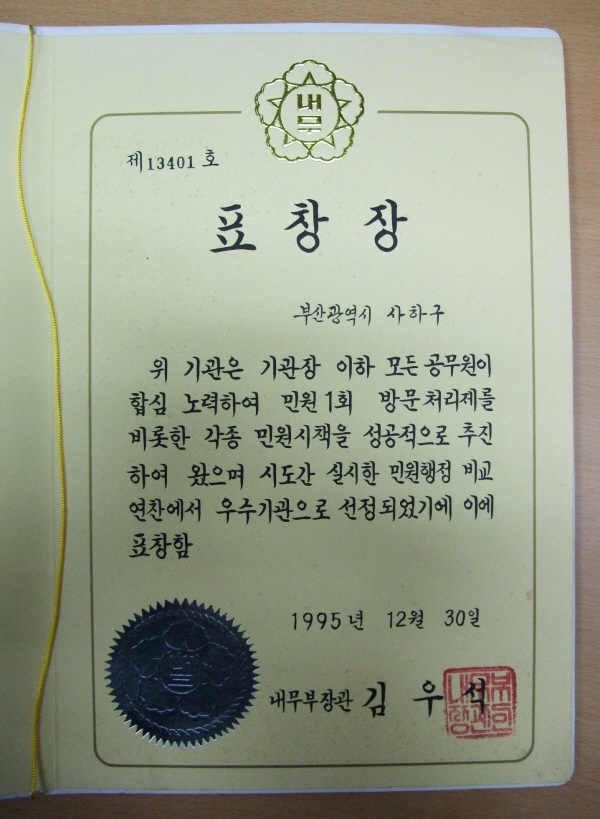 내무
제13401호
표창장
부산광역시 사하구
위 기관은 기관장 이하 모든 공무원이
합심 노력하여 민원1회 방문처리제를
비롯한 각종 민원시책을 성공적으로 추진
하여 왔으며 시도간 실시한 민원행정 비교
연찬에서 우수기관으로 선정되었기에 이에
표창함
1995년 12월 30일
내무부장관 김우석